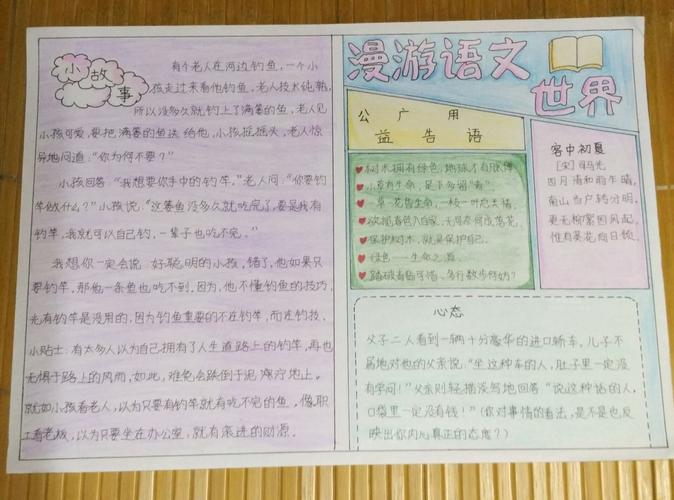 小故事
有个老人在河边钓鱼,一个小
孩走过来看他钓鱼,老人技术纯熟,
所以没多久就钓上了满篓的鱼,老人见
小孩可爱,要把满篓的鱼送给他,小孩摇摇头,老人惊
异地问道:“你为何不要?”
小孩回答:“我想要你手中的钓竿。”老人问:“你要钓
竿做什么?”小孩说:“这篓鱼没多久就吃完了,要是我有
钓竿,我就可以自己钓,一辈子也吃不完。”
我想你一定会说:好聪明的小孩,错了,他如果只
要钓竿,那他一条鱼也吃不到,因为,他不懂钓鱼的技巧,
光有钓竿是没用的,因为钓鱼重要的不在钓竿,而在钓技,
小贴士:有太多人认为自己拥有了人生道路上的钓竿,再也
无惧于路上的风雨,如此,难免会跌倒于泥泞地上。
就如小孩看老人,以为只要有钓竿就有吃不完的鱼,像职
工看老板,以为只要坐在办公室,就有滚进的财源。
漫游语文
世界
公广用
益告语
树木拥有绿色,地球才有脉搏
小草有生命,足下多留“青”
一草一花皆生命,一枝一叶总关情
保护树木,就是保护自己。
绿色——生命之源
踏破青毡可惜,多行数步何妨?
客中初夏
[宋]司马光
四月清和雨乍晴,
南山当户转分明,
更无柳絮因风起,
惟有葵花向日倾。
心态
父子二人看到一辆十分豪华的进口轿车。儿子不
屑地对他的父亲说:“坐这种车的人,肚子里一定没
有学问!”父亲则轻描淡写地回答:“说这种话的人,
口袋里一定没有钱!”(你对事情的看法,是不是也反
映出你内心真正的态度?)